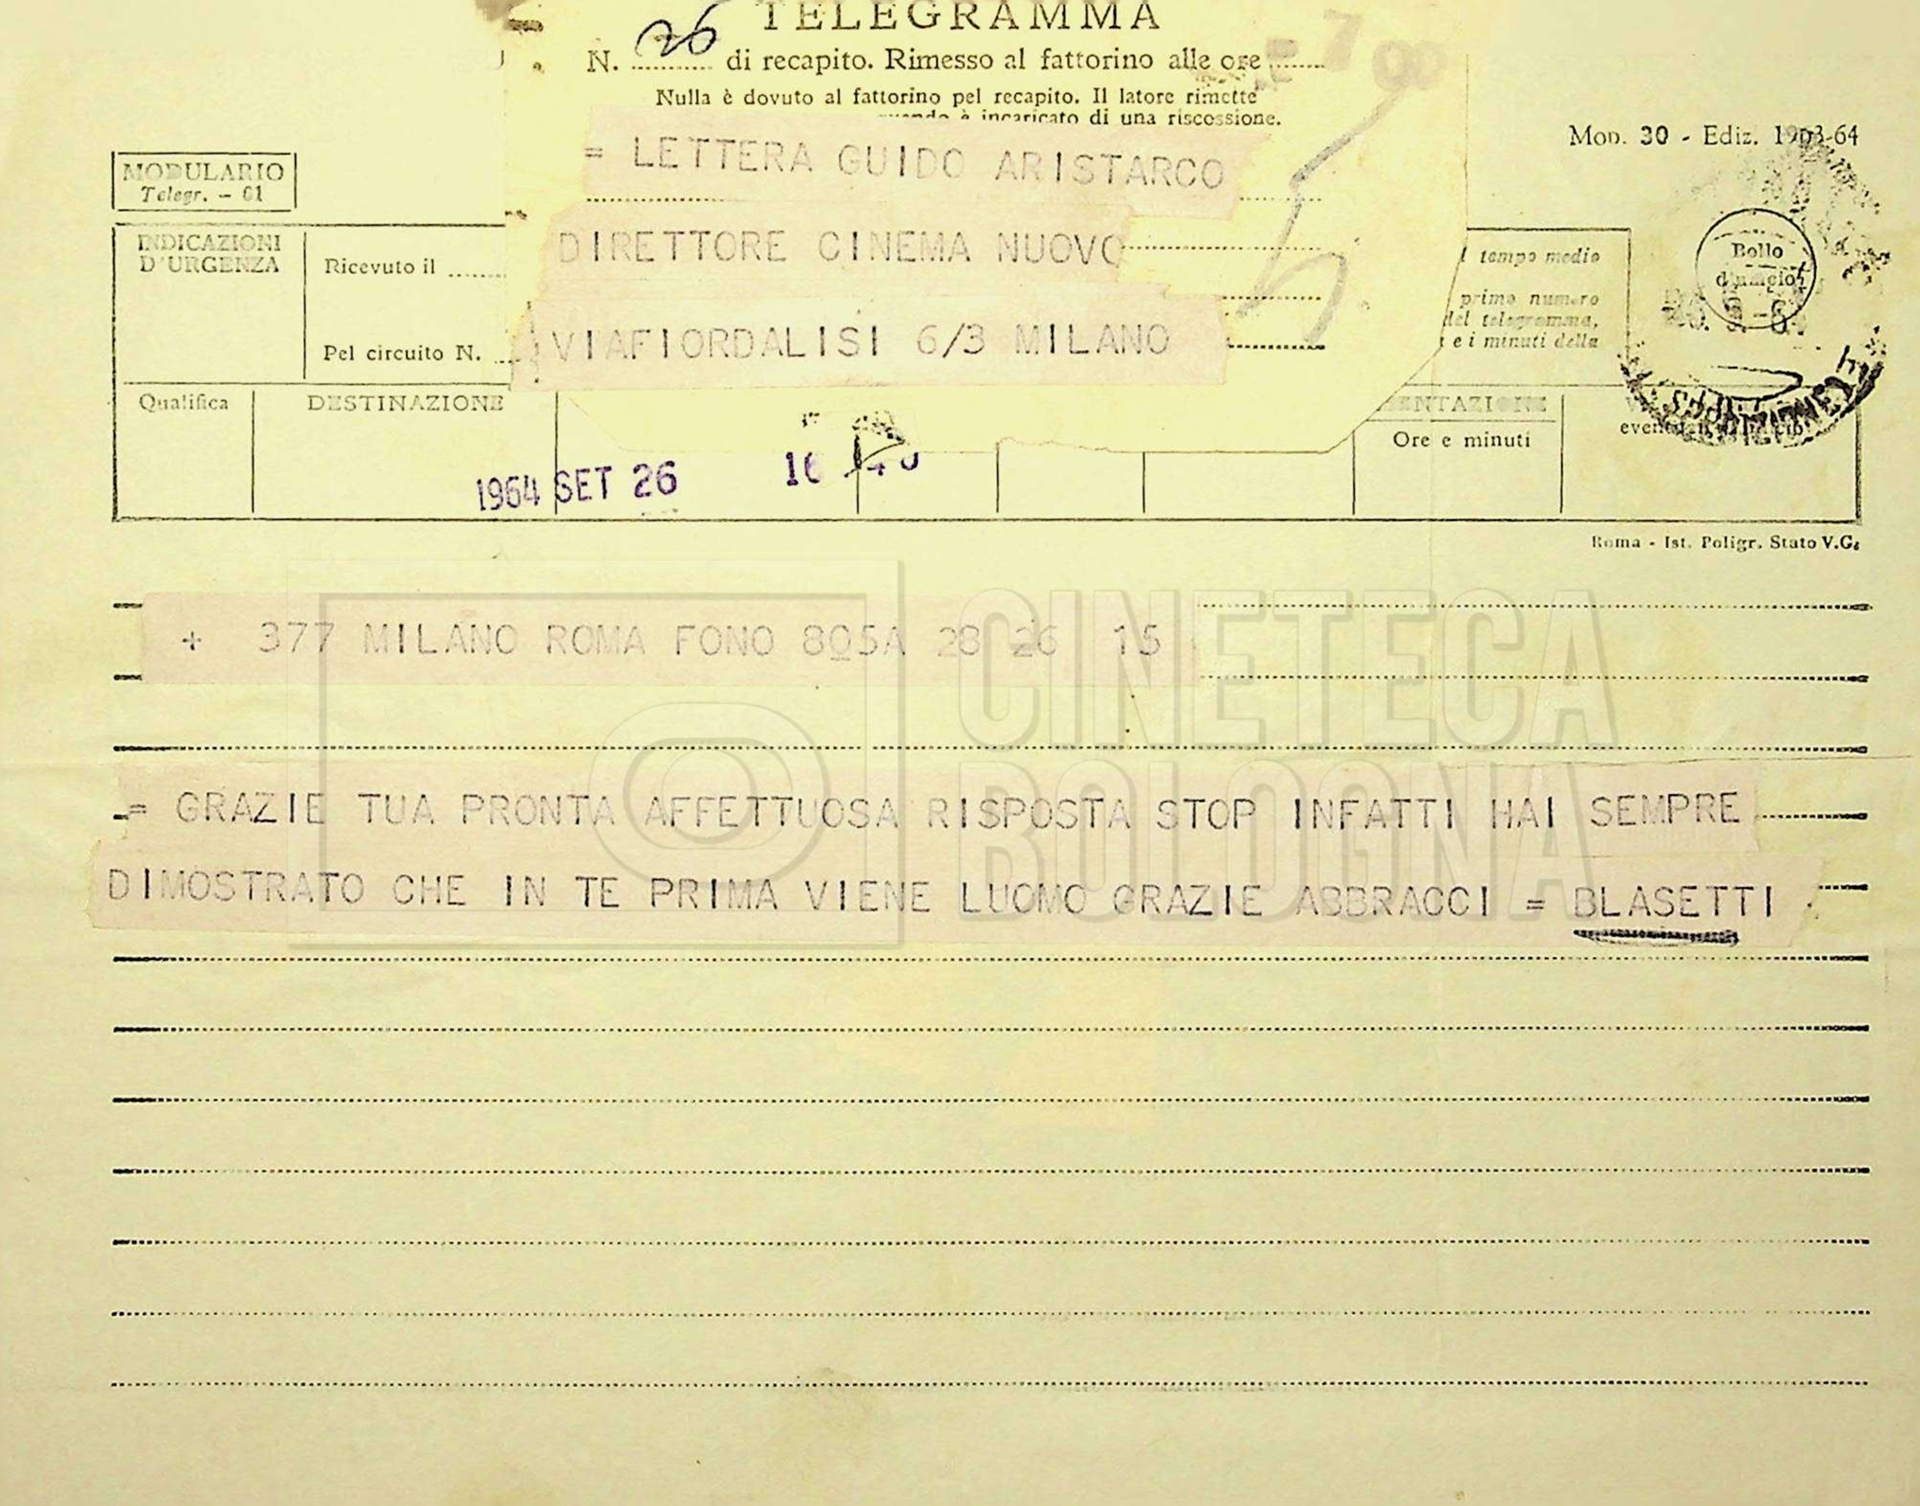 TELEGRAMMA
N. 26 di recapito. Rimesso al fattorino alle ore
Nulla è dovuto al fattorino pel recapito. Il latore rimette
quando è incaricato di una riscossione.
Mod. 30 - Ediz. 1963-64
MODULARIO
Telegr. - 61
= LETTERA GUIDO ARISTARCO
DIRETTORE CINEMA NUOVO
VIAFIORDALISI 6/3 MILANO
INDICAZIONI
D'URGENZA
Ricevuto il
Pel circuito N.
tempo medio
primo numero
del telegramma,
e i minuti della
Bollo
d'ufficio
Qualifica
DESTINAZIONE
Ore e minuti
1964 SET 26 16
Roma - Ist. Poligr. Stato V.G.
+ 377 MILANO ROMA FONO 805A 28 26 15
CINETECA
BOLOGNA
= GRAZIE TUA PRONTA AFFETTUOSA RISPOSTA STOP INFATTI HAI SEMPRE
DIMOSTRATO CHE IN TE PRIMA VIENE LUOMO GRAZIE ABBRACCI = BLASETTI